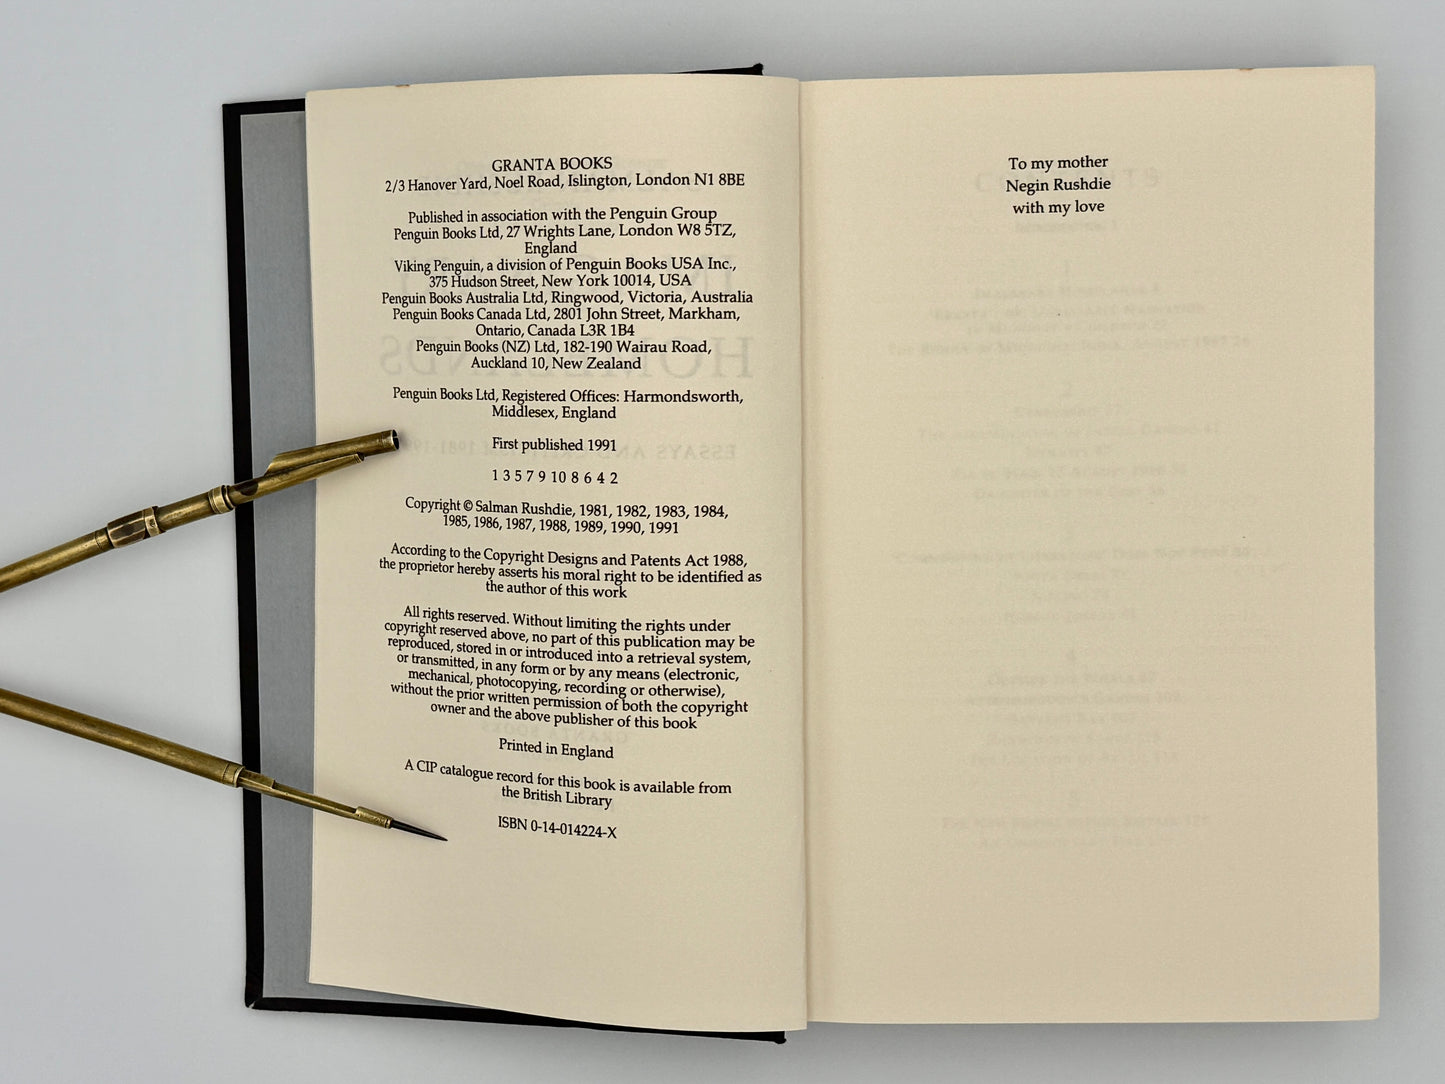 GRANTA BOOKS
2/3 Hanover Yard, Noel Road, Islington, London N1 8BE
Published in association with the Penguin Group
Penguin Books Ltd, 27 Wrights Lane, London W8 5TZ,
England
Viking Penguin, a division of Penguin Books USA Inc.,
375 Hudson Street, New York 10014, USA
Penguin Books Australia Ltd, Ringwood, Victoria, Australia
Penguin Books Canada Ltd, 2801 John Street, Markham,
Ontario, Canada L3R 1B4
Penguin Books (NZ) Ltd, 182-190 Wairau Road,
Auckland 10, New Zealand
Penguin Books Ltd, Registered Offices: Harmondsworth,
Middlesex, England
First published 1991
1 3 5 7 9 10 8 6 4 2
Copyright © Salman Rushdie, 1981, 1982, 1983, 1984,
1985, 1986, 1987, 1988, 1989, 1990, 1991
According to the Copyright Designs and Patents Act 1988,
the proprietor hereby asserts his moral right to be identified as
the author of this work
All rights reserved. Without limiting the rights under
copyright reserved above, no part of this publication may be
reproduced, stored in or introduced into a retrieval system,
or transmitted, in any form or by any means (electronic,
mechanical, photocopying, recording or otherwise),
without the prior written permission of both the copyright
owner and the above publisher of this book
Printed in England
A CIP catalogue record for this book is available from
the British Library
ISBN 0-14-014224-X
To my mother
Negin Rushdie
with my love